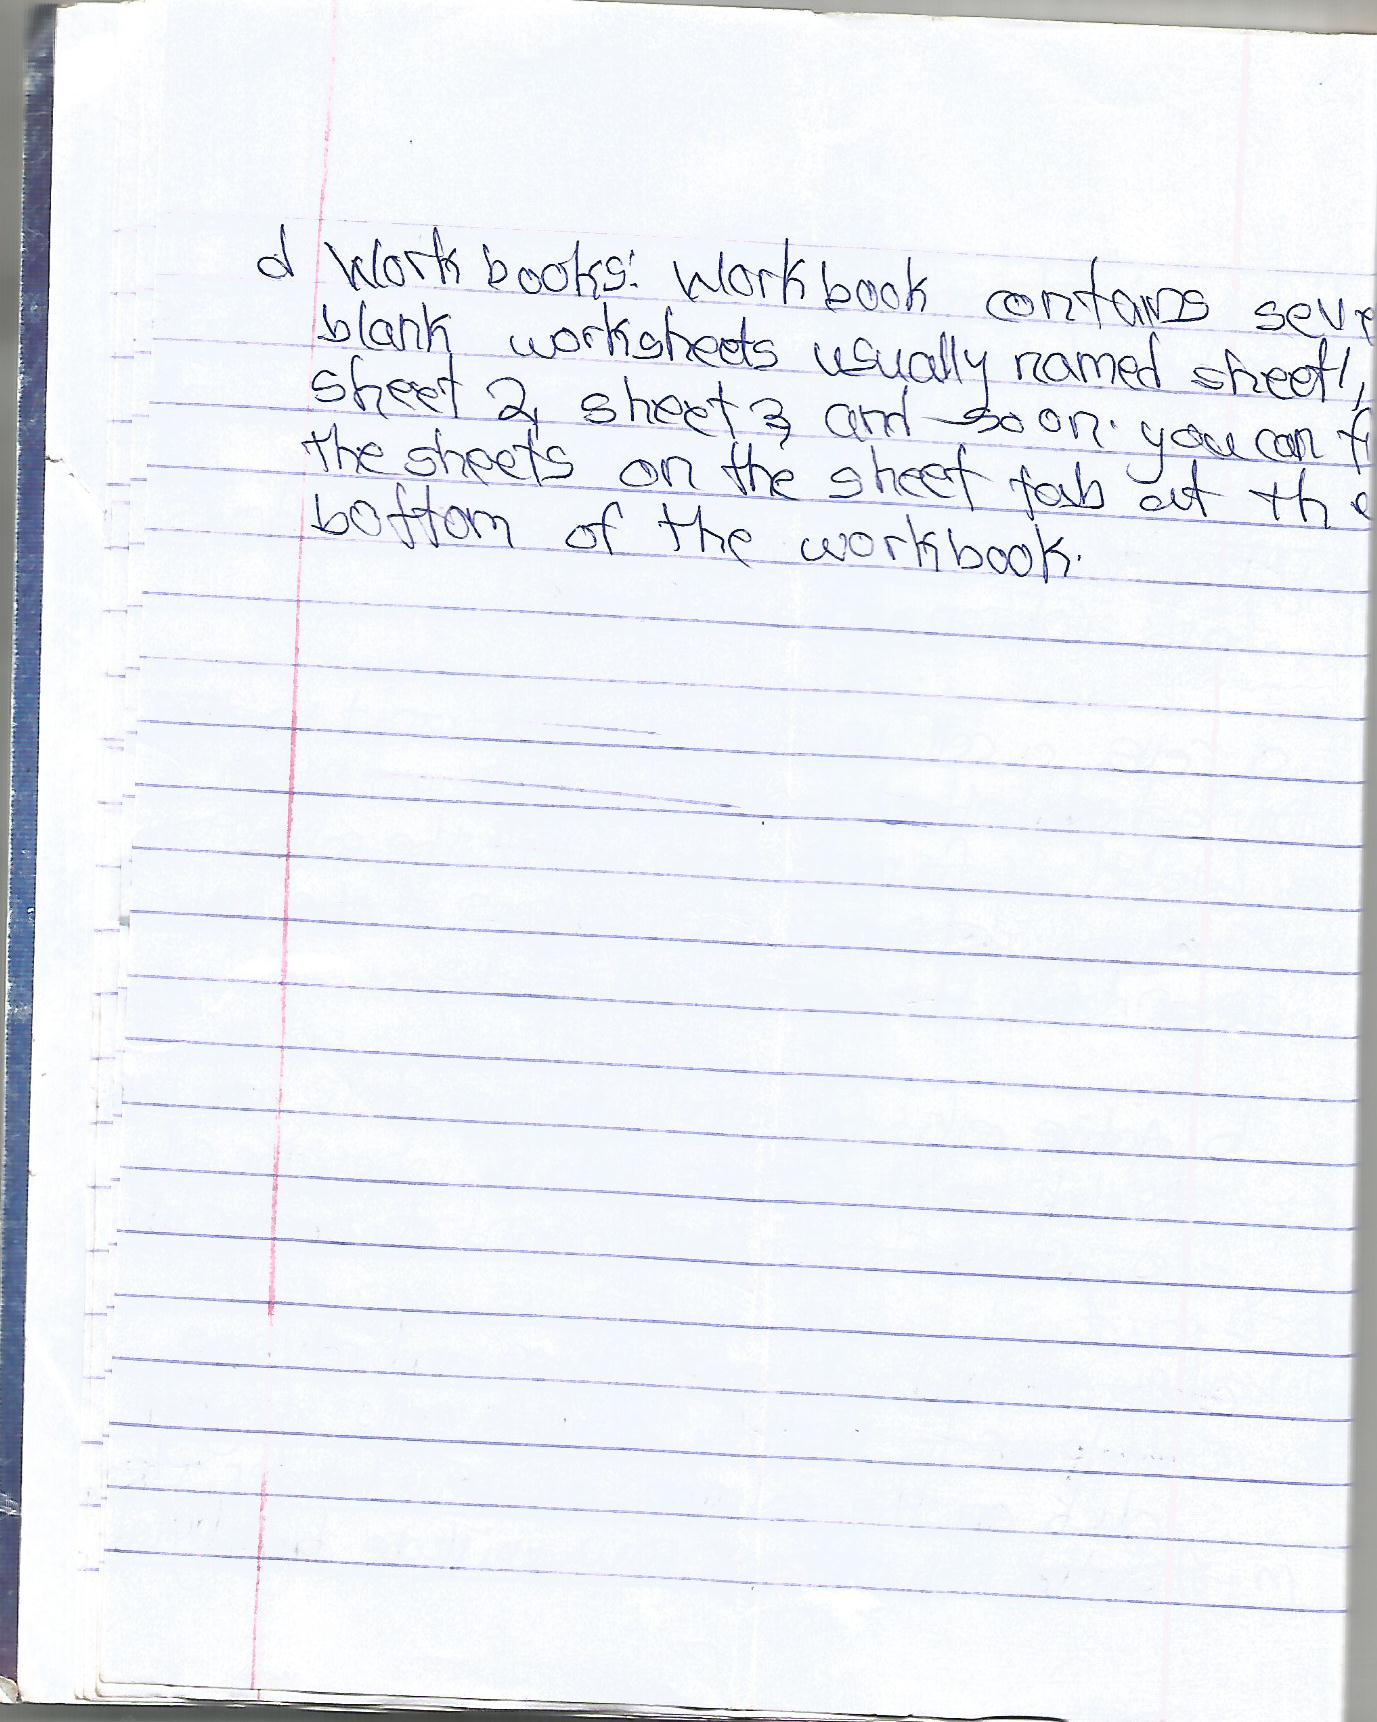 d Work books: Workbook contains seve
blank worksheets usually named sheet1,
sheet 2, sheet 3, and so on. you can f
the sheets on the sheet tab at the
bottom of the workbook.